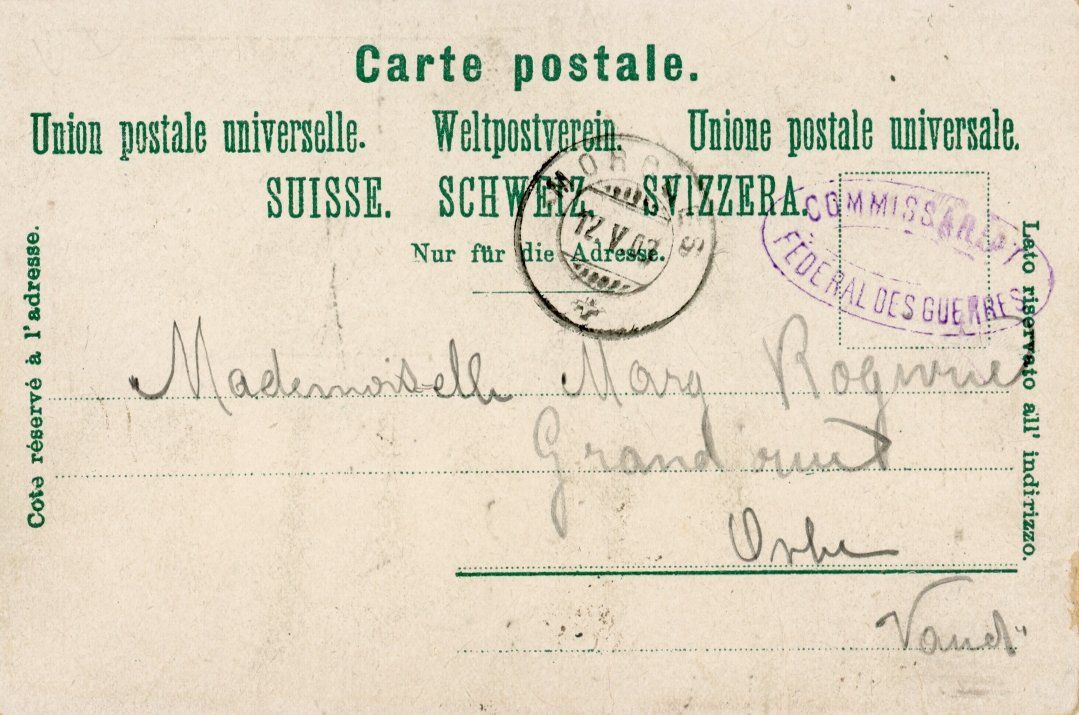 Carte postale.
Union postale universelle. Weltpostverein. Unione postale universale.
SUISSE. SCHWEIZ. SVIZZERA.
Nur für die Adresse.
Côté réservé à l'adresse.
Lato riservato all' indirizzo.
MORGES
12 V 03
COMMISSARIAT
FÉDÉRAL DES GUERRES
Mademoiselle Marg
Grand rue
Orbe
Vaud